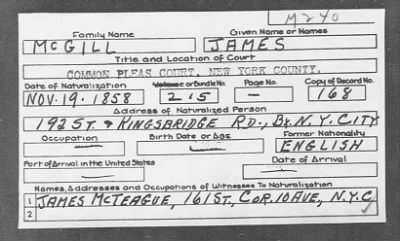 M240
Family Name Given Name or Names
McGILL JAMES
Title and Location of Court
COMMON PLEAS COURT, NEW YORK COUNTY.
Date of Naturalization Volume or Bundle No. Page No. Copy of Record No.
NOV. 19. 1858 2'5 — 168
Address of Naturalized Person
192 ST. & KINGSBRIDGE RD., By. N.Y. CITY
Occupation Birth Date or Age Former Nationality
— — ENGLISH
Port of Arrival in the United States Date of Arrival
— —
Names, Addresses and Occupations of Witnesses To Naturalization
1 JAMES McTEAGUE, 161 ST., COR. 10 AVE, N.Y.C.
2